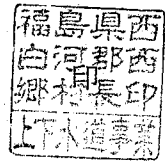 福島県西
白河郡西
印
郷村長印
上下水道事業